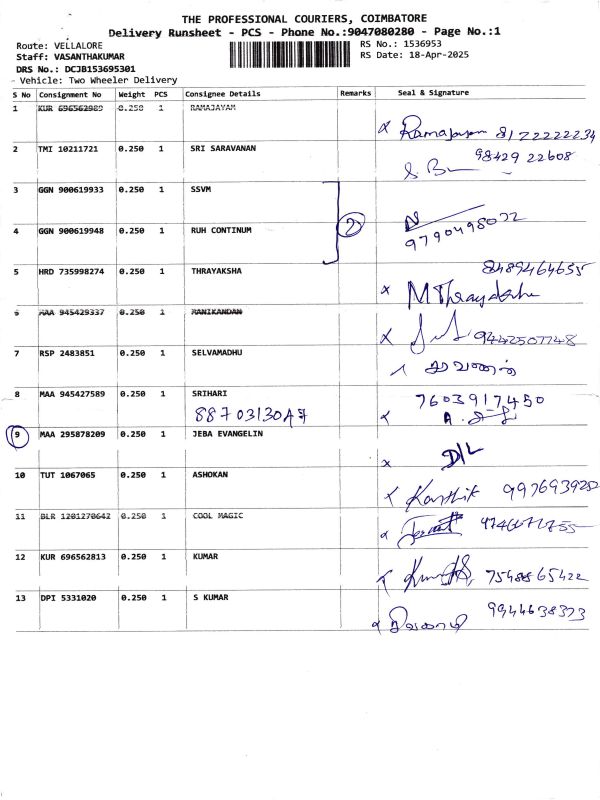 THE PROFESSIONAL COURIERS, COIMBATORE
Delivery Runsheet - PCS - Phone No.:9047080280 - Page No.:1
Route: VELLALORE
Staff: VASANTHAKUMAR
DRS No.: DCJB153695301
Vehicle: Two Wheeler Delivery
RS No.: 1536953
RS Date: 18-Apr-2025
S No Consignment No Weight PCS Consignee Details Remarks Seal & Signature
1 KUR 696562989 0.250 1 RAMAJAYAM
x Ramajayam 8122222234
2 TMI 10211721 0.250 1 SRI SARAVANAN
98429 22608
3 GGN 900619933 0.250 1 SSVM
2
9790498072
4 GGN 900619948 0.250 1 RUH CONTINUM
5 HRD 735998274 0.250 1 THRAYAKSHA
8489464655
x M Thrayaksha
6 MAA 945429337 0.250 1 MANIKANDAN
x 9442507748
7 RSP 2483851 0.250 1 SELVAMADHU
சரவணன்
8 MAA 945427589 0.250 1 SRIHARI
7603917450
9 MAA 295878209 0.250 1 JEBA EVANGELIN
x D/L
10 TUT 1067065 0.250 1 ASHOKAN
x Karthik
11 BLR 1201270642 0.250 1 COOL MAGIC
12 KUR 696562813 0.250 1 KUMAR
7548865422
13 DPI 5331020 0.250 1 S KUMAR
9944638373